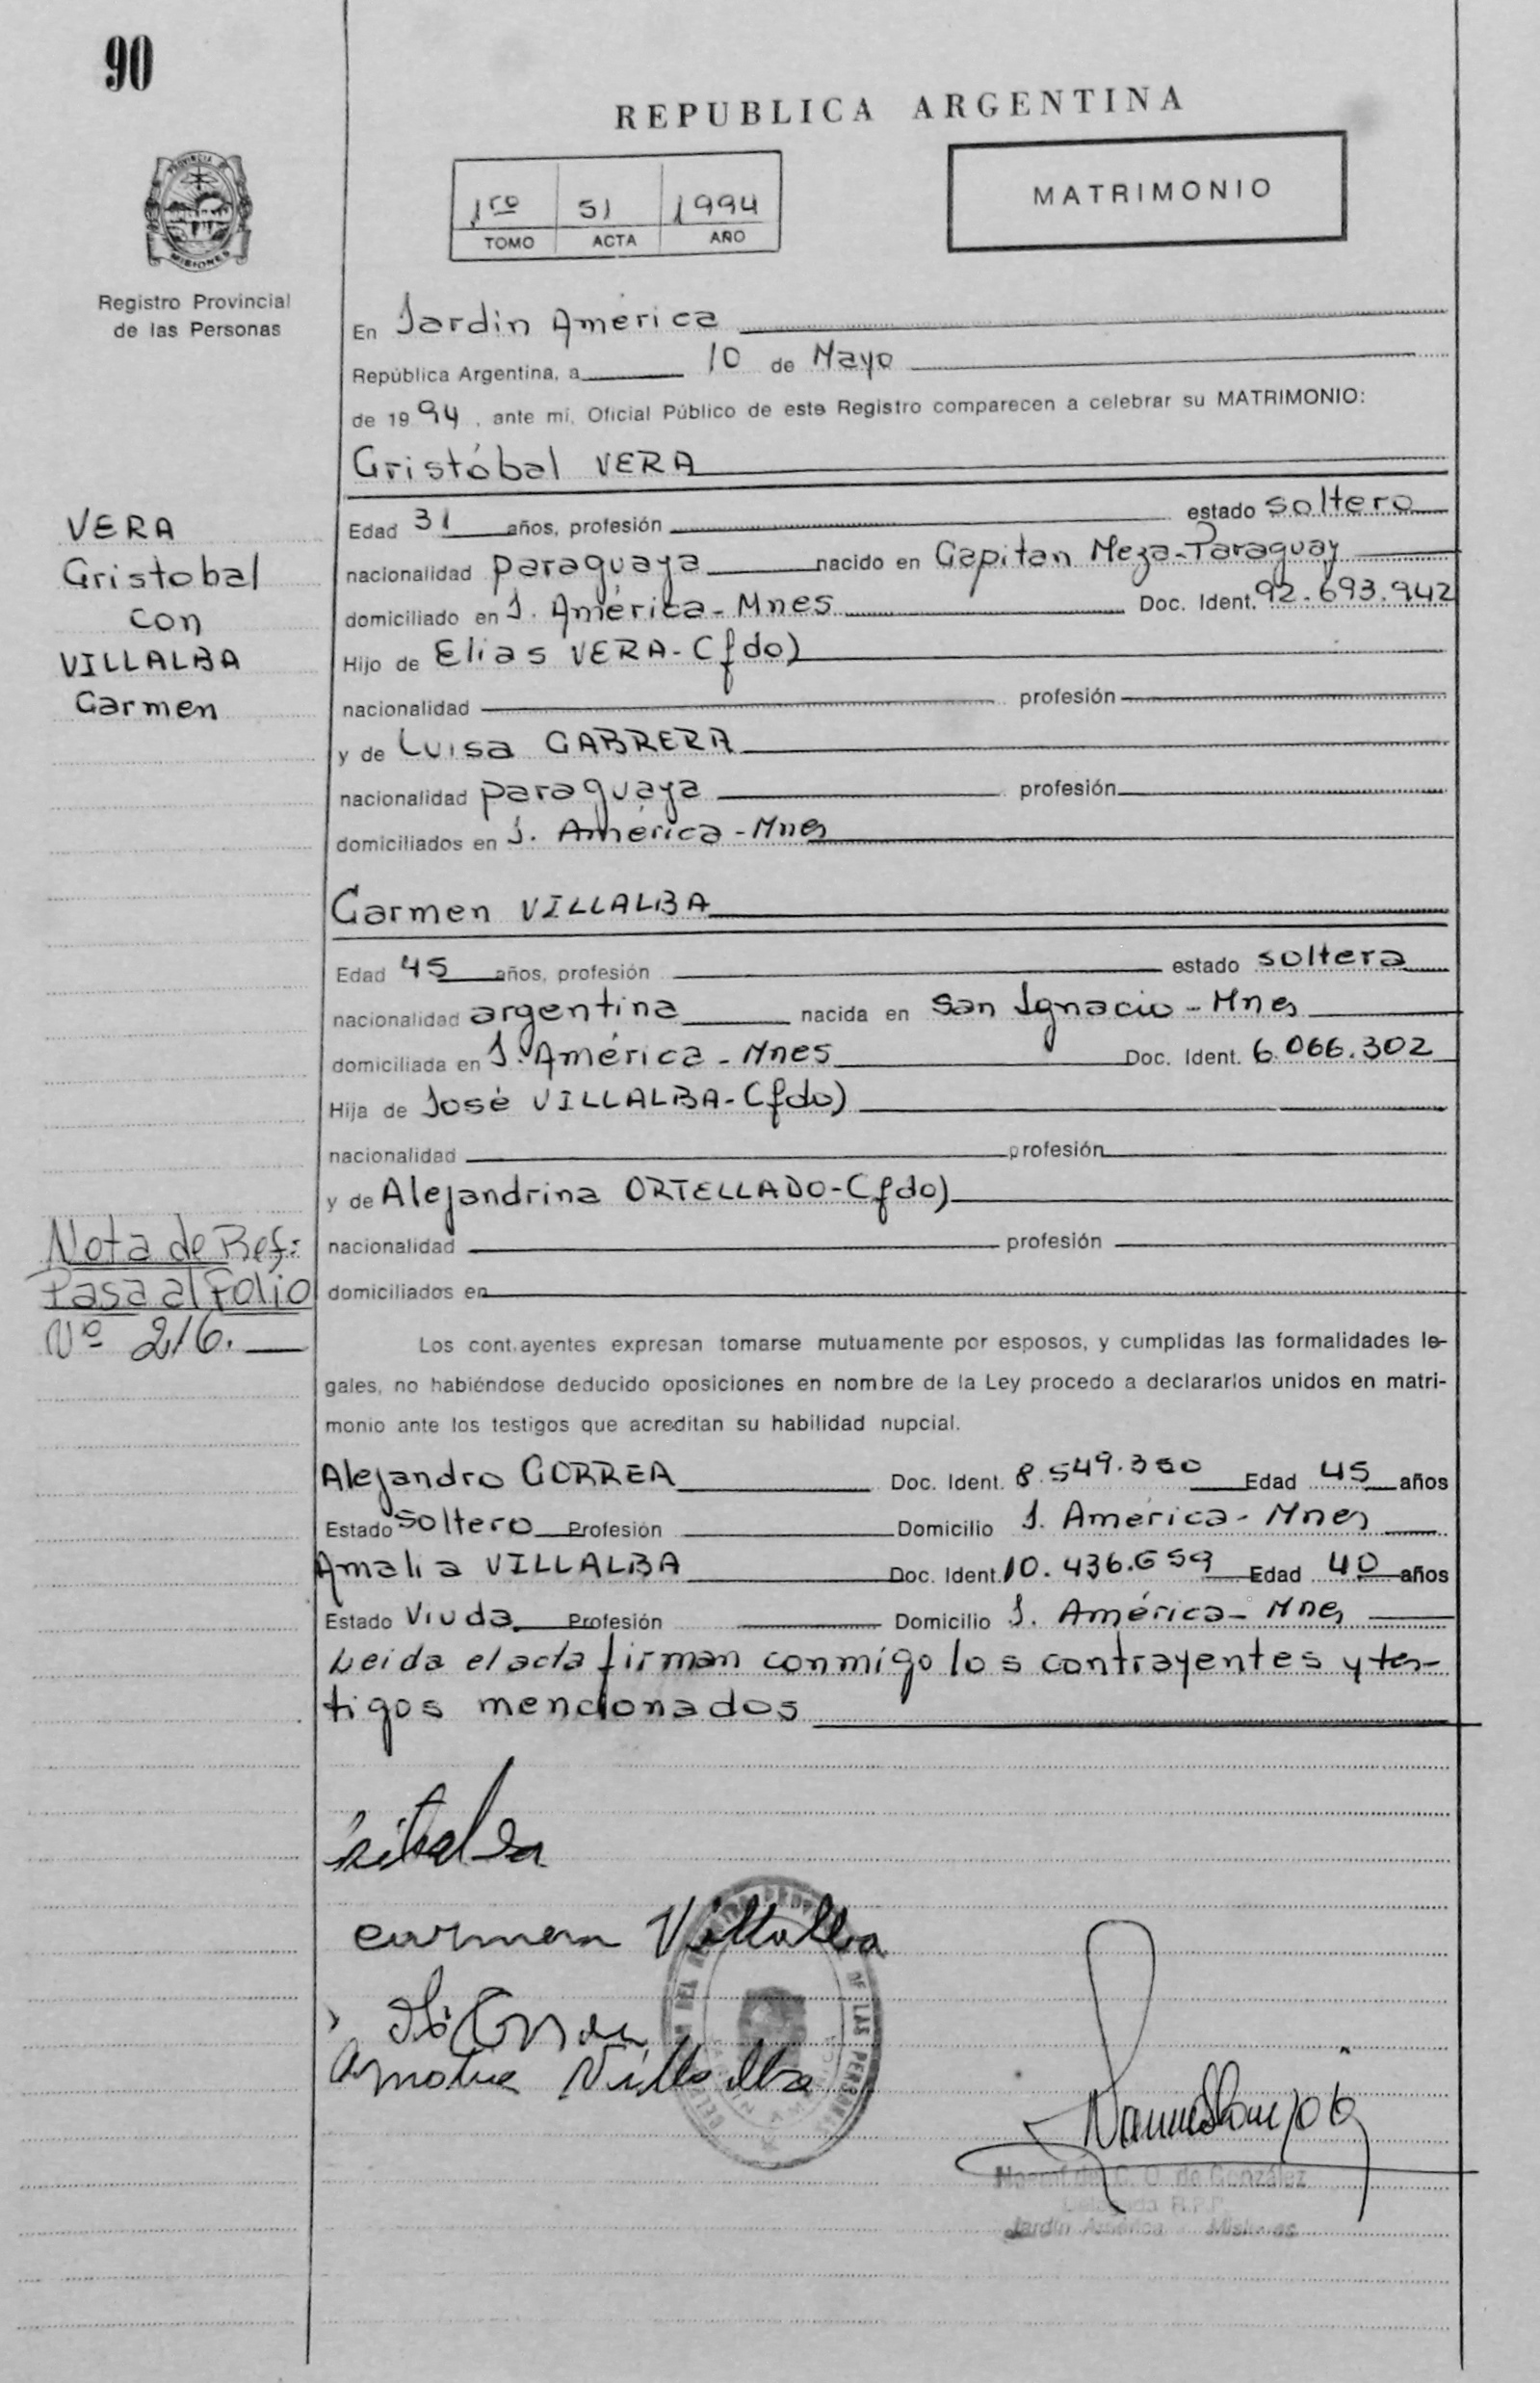 90
REPUBLICA ARGENTINA
PROVINCIA DE
MISIONES
1ro 51 1994
TOMO ACTA AÑO
MATRIMONIO
Registro Provincial
de las Personas
En Jardin América
República Argentina, a 10 de Mayo
de 1994, ante mí, Oficial Público de este Registro comparecen a celebrar su MATRIMONIO:
Cristóbal VERA
VERA
Cristobal
con
VILLALBA
Carmen
Edad 31 años, profesión estado soltero
nacionalidad paraguaya nacido en Capitan Meza-Paraguay
domiciliado en J. América - Mnes Doc. Ident. 92.693.942
Hijo de Elias VERA-(fdo)
nacionalidad profesión
y de Luisa CABRERA
nacionalidad paraguaya profesión
domiciliados en J. América - Mnes
Carmen VILLALBA
Edad 45 años, profesión estado soltera
nacionalidad argentina nacida en San Ignacio - Mnes
domiciliada en J. América - Mnes Doc. Ident. 6.066.302
Hija de José VILLALBA-(fdo)
nacionalidad profesión
y de Alejandrina ORTELLADO-(fdo)
nacionalidad profesión
domiciliados en
Nota de Ref:
Pasa al Folio
Nº 216.
Los contrayentes expresan tomarse mutuamente por esposos, y cumplidas las formalidades le-
gales, no habiéndose deducido oposiciones en nombre de la Ley procedo a declararlos unidos en matri-
monio ante los testigos que acreditan su habilidad nupcial.
Alejandro CORREA Doc. Ident. 8.549.350 Edad 45 años
Estado soltero Profesión Domicilio J. América - Mnes
Amalia VILLALBA Doc. Ident. 10.436.659 Edad 40 años
Estado Viuda Profesión Domicilio J. América - Mnes
Leida el acta firman conmigo los contrayentes y tes-
tigos mencionados
carmen Villalba
Amalia Villalba
DE LAS PERSONAS
C. O. de González
Delegada R.P.P.
Jardín América Misiones